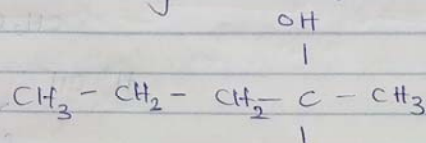 OH
|
CH3 - CH2 - CH2 - C - CH3
|